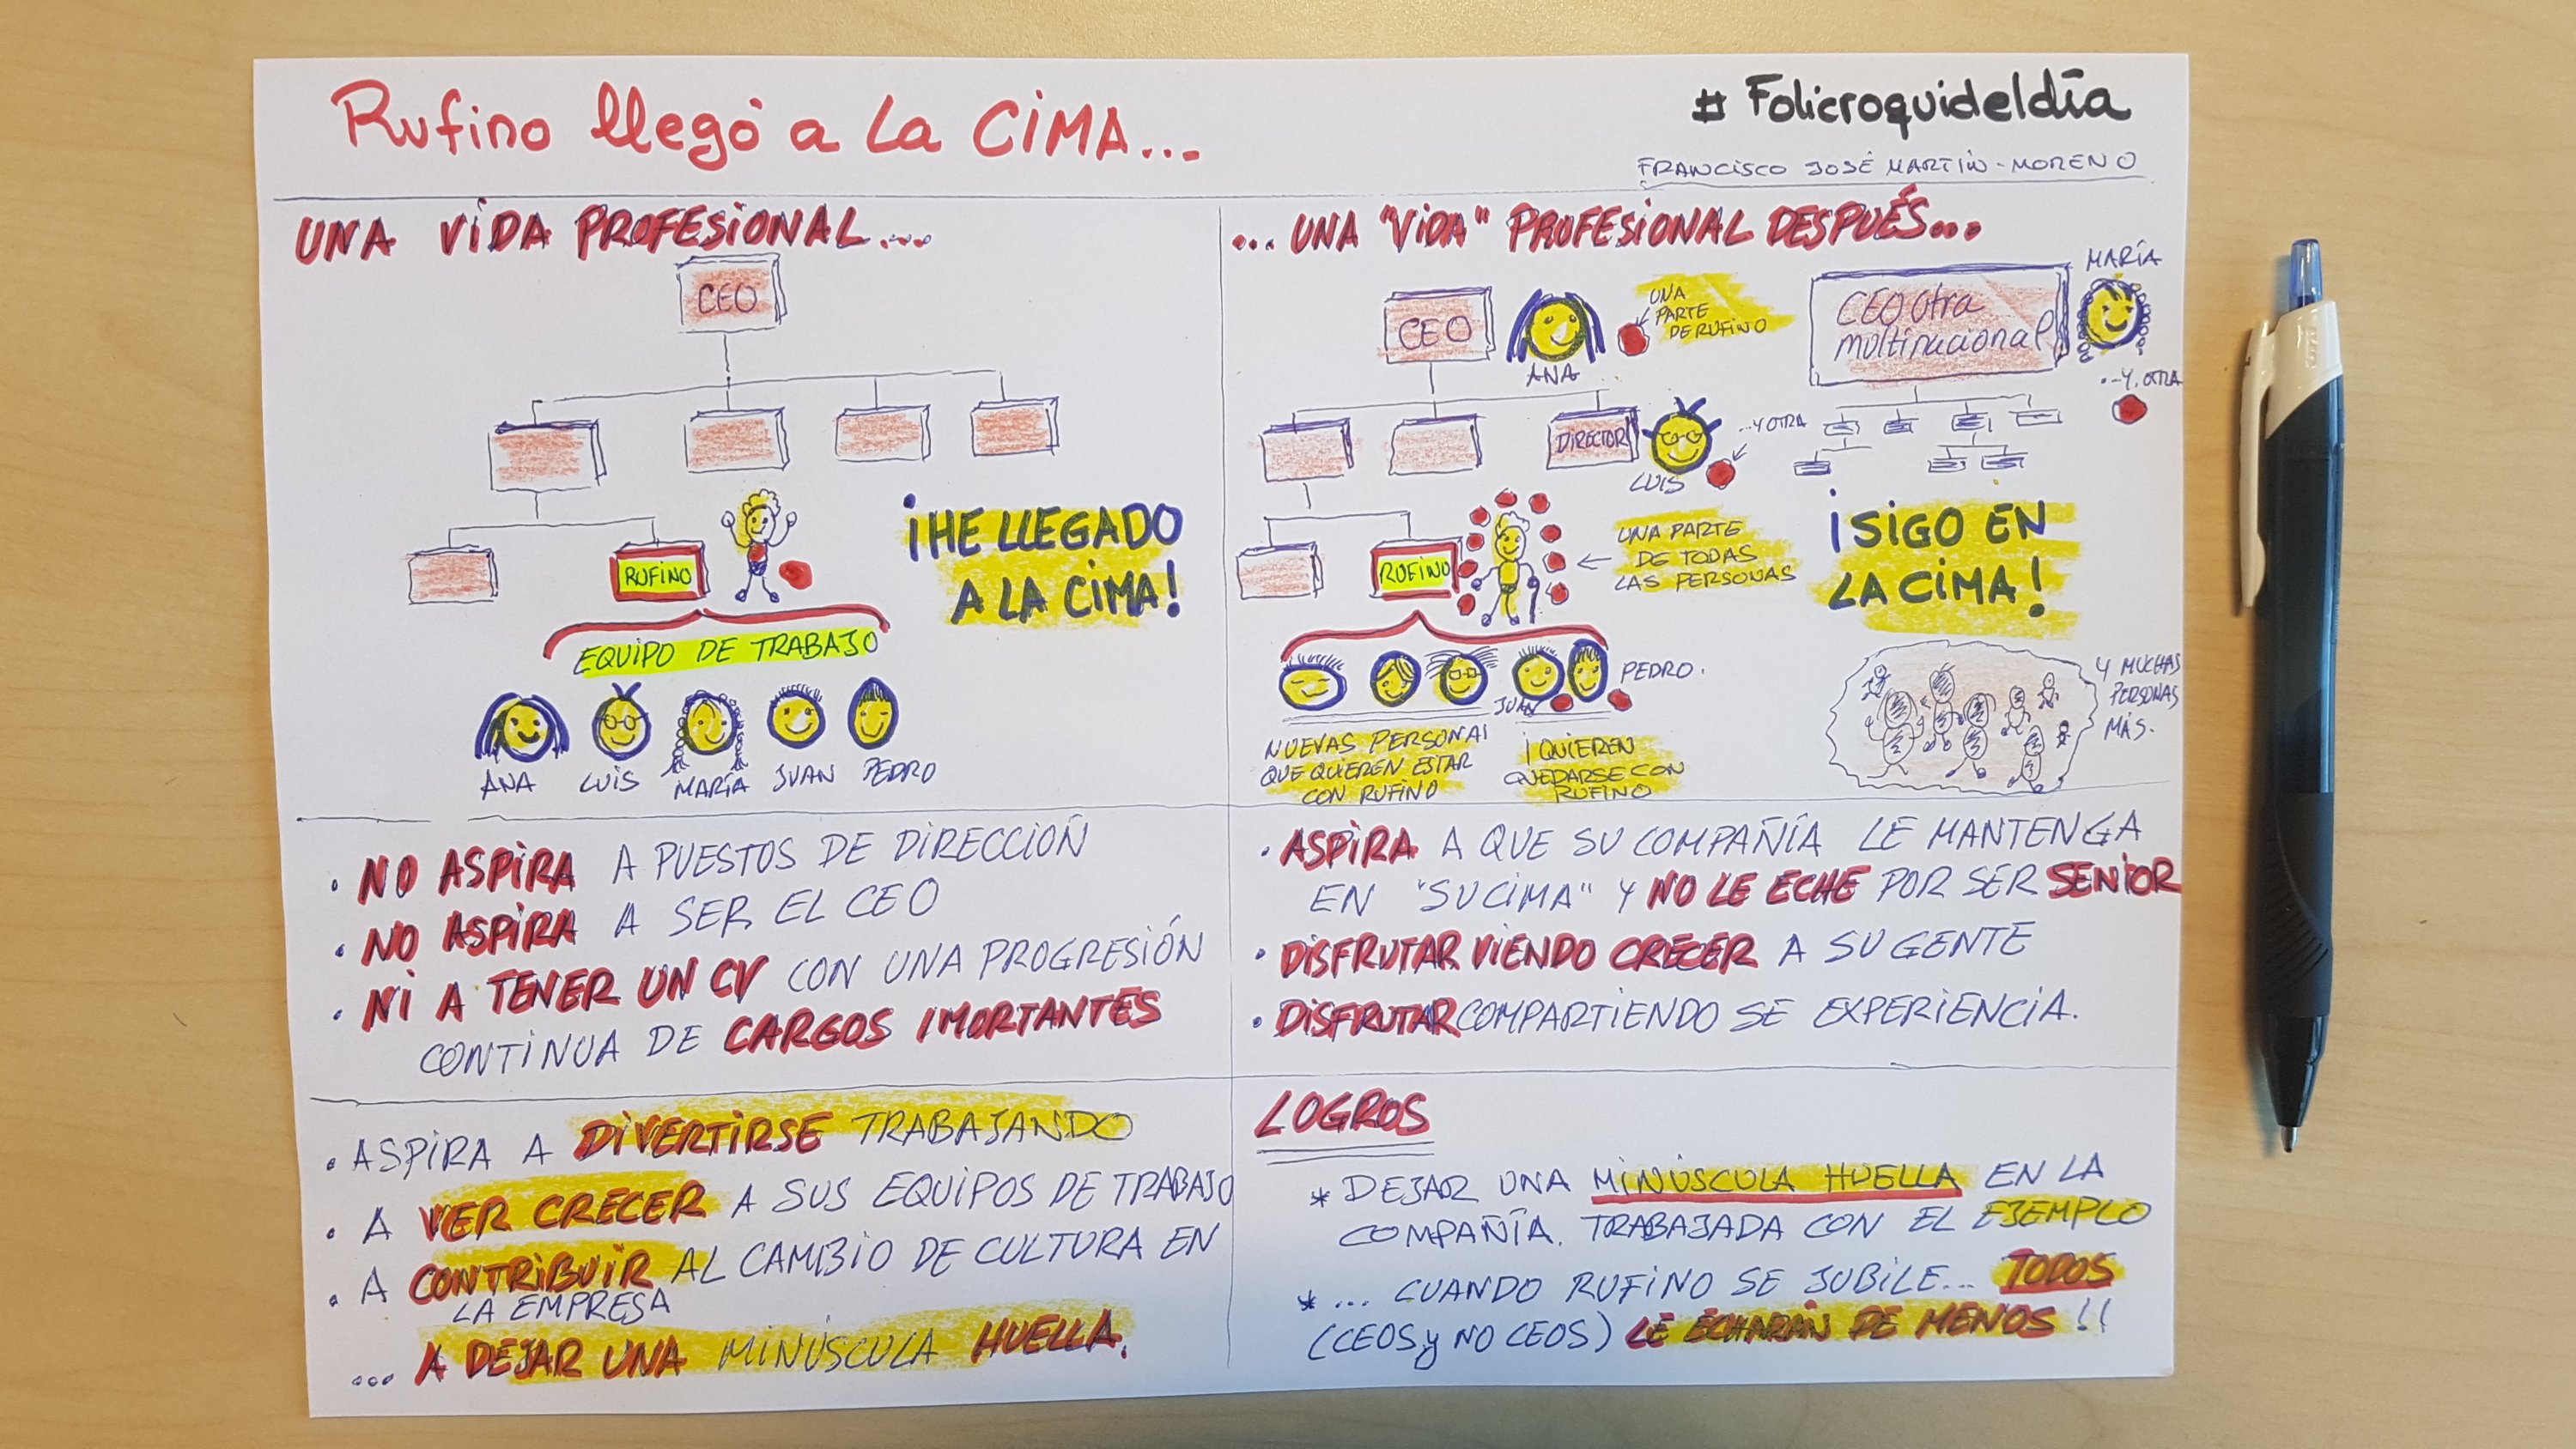 Rufino llegó a la CiMA...
# Folicroquideldía
FRANCISCO JOSÉ MARTÍN-MORENO
UNA ViDA PROFESIONAL...
CEO
RUFINO
¡HE LLEGADO
A LA CIMA!
EQUIPO DE TRABAJO
ANA LUIS MARÍA JUAN PEDRO
... UNA "ViDA" PROFESIONAL DESPUÉS...
CEO
ANA
UNA
PARTE
DE RUFINO
CEO otra
multinacional
MARÍA
...Y OTRA
DIRECTOR
LUIS
...Y OTRA
RUFINO
UNA PARTE
DE TODAS
LAS PERSONAS
¡SIGO EN
LA CIMA!
JUAN
PEDRO.
NUEVAS PERSONAS
QUE QUIEREN ESTAR
CON RUFINO
¡QUIEREN
QUEDARSE CON
RUFINO
Y MUCHAS
PERSONAS
MÁS.
• NO ASPIRA A PUESTOS DE DIRECCIÓN
• NO ASPIRA A SER EL CEO
• NI A TENER UN CV CON UNA PROGRESIÓN
CONTINUA DE CARGOS IMORTANTES
• ASPIRA A QUE SU COMPAÑÍA LE MANTENGA
EN "SU CIMA" Y NO LE ECHE POR SER SENIOR
• DISFRUTAR VIENDO CRECER A SU GENTE
• DISFRUTAR COMPARTIENDO SE EXPERIENCIA.
• ASPIRA A DIVERTIRSE TRABAJANDO
• A VER CRECER A SUS EQUIPOS DE TRABAJO
• A CONTRIBUIR AL CAMBIO DE CULTURA EN
LA EMPRESA
... A DEJAR UNA MINÚSCULA HUELLA.
LOGROS
* DEJAR UNA MINÚSCULA HUELLA EN LA
COMPAÑÍA. TRABAJADA CON EL EJEMPLO
* ... CUANDO RUFINO SE JUBILE... TODOS
(CEOS y NO CEOS) LE ECHARÁN DE MENOS !!